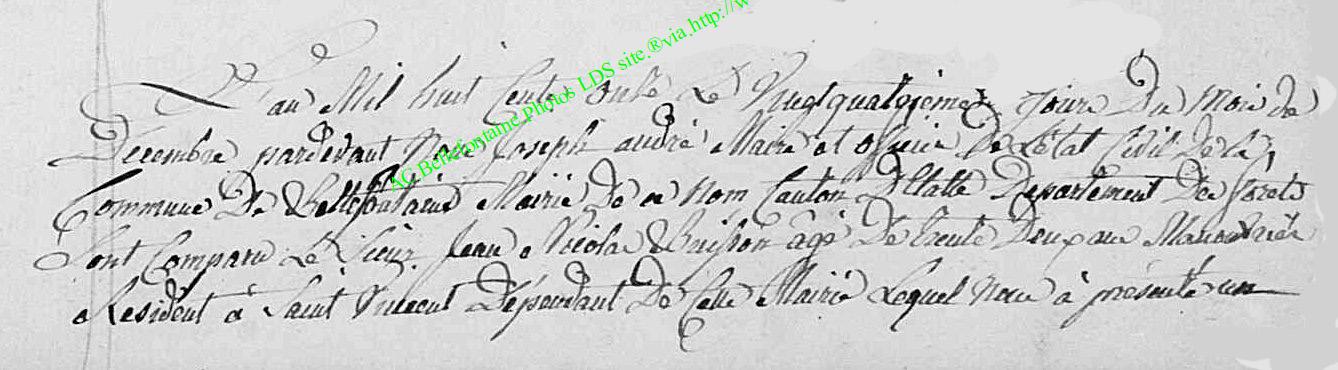 L'an Mil huit Cents onze Le Vingtquatrieme Jour Du Mois de
Decembre pardevant Nous Joseph andré Maire et officier De L'Etat Civil De la
Commune De Bellefontaine Mairie De ce Nom Canton D'Etalle Departement Des forets
Sont Comparu Le Sieur Jean Nicolas Buisson agé De trente Deux ans Manouvrier
Resident à Saint Vincent Dependant De Cette Mairie Lequel Nous à présenté un
AC Bellefontaine Photos LDS site ®via http://w